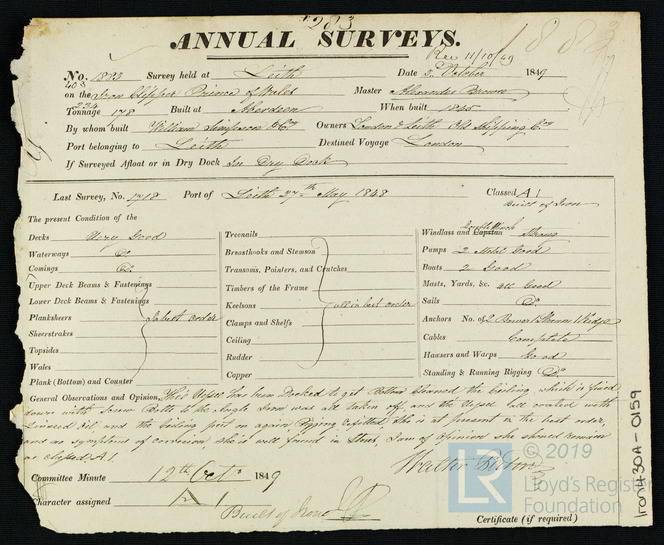 283
ANNUAL SURVEYS.
Rec 11/10/49
1883
No. 1893 Survey held at Leith Date 2 October 1849
403
on the Iron Clipper Prince of Wales Master Alexander Brown
234
Tonnage 178 Built at Aberdeen When built 1845
By whom built William Simpson & Co Owners London & Leith Old Shipping Co
Port belonging to Leith Destined Voyage London
If Surveyed Afloat or in Dry Dock In Dry Dock
Last Survey, No. 1718 Port of Leith 27th May 1848 Classed A1
Built of Iron
The present Condition of the
Decks Very Good
Waterways Do
Comings Do
Upper Deck Beams & Fastenings
Lower Deck Beams & Fastenings
Planksheers In best order
Sheerstrakes
Topsides
Wales
Plank (Bottom) and Counter
Treenails
Breasthooks and Stemson
Transoms, Pointers, and Crutches
Timbers of the Frame
Keelsons all in best order
Clamps and Shelfs
Ceiling
Rudder
Copper
Windlass and Capstan Strong
Pumps 2 Metal Good
Boats 2 Good
Masts, Yards, &c. all Good
Sails Do
Anchors No. of 2 Bowers 1 Stream 1 Kedge
Cables Complete
Hawsers and Warps Good
Standing & Running Rigging Do
General Observations and Opinion, This Vessel has been Docked to get Bottom cleaned the Ceiling which is fixed
down with Screw Bolts to the Angle Iron was all taken off, and the Vessel all coated with
Linseed Oil and the Ceiling put on again, She is at present in the best order,
and no symptoms of corrosion, she is well found in Stores, I am of Opinion she should remain
as classed A1.
Committee Minute 12th Octr 1849
Character assigned A1
Built of Iron
Certificate (if required)
Iron430A-0159
© 2019
LR
Lloyd's Register
Foundation